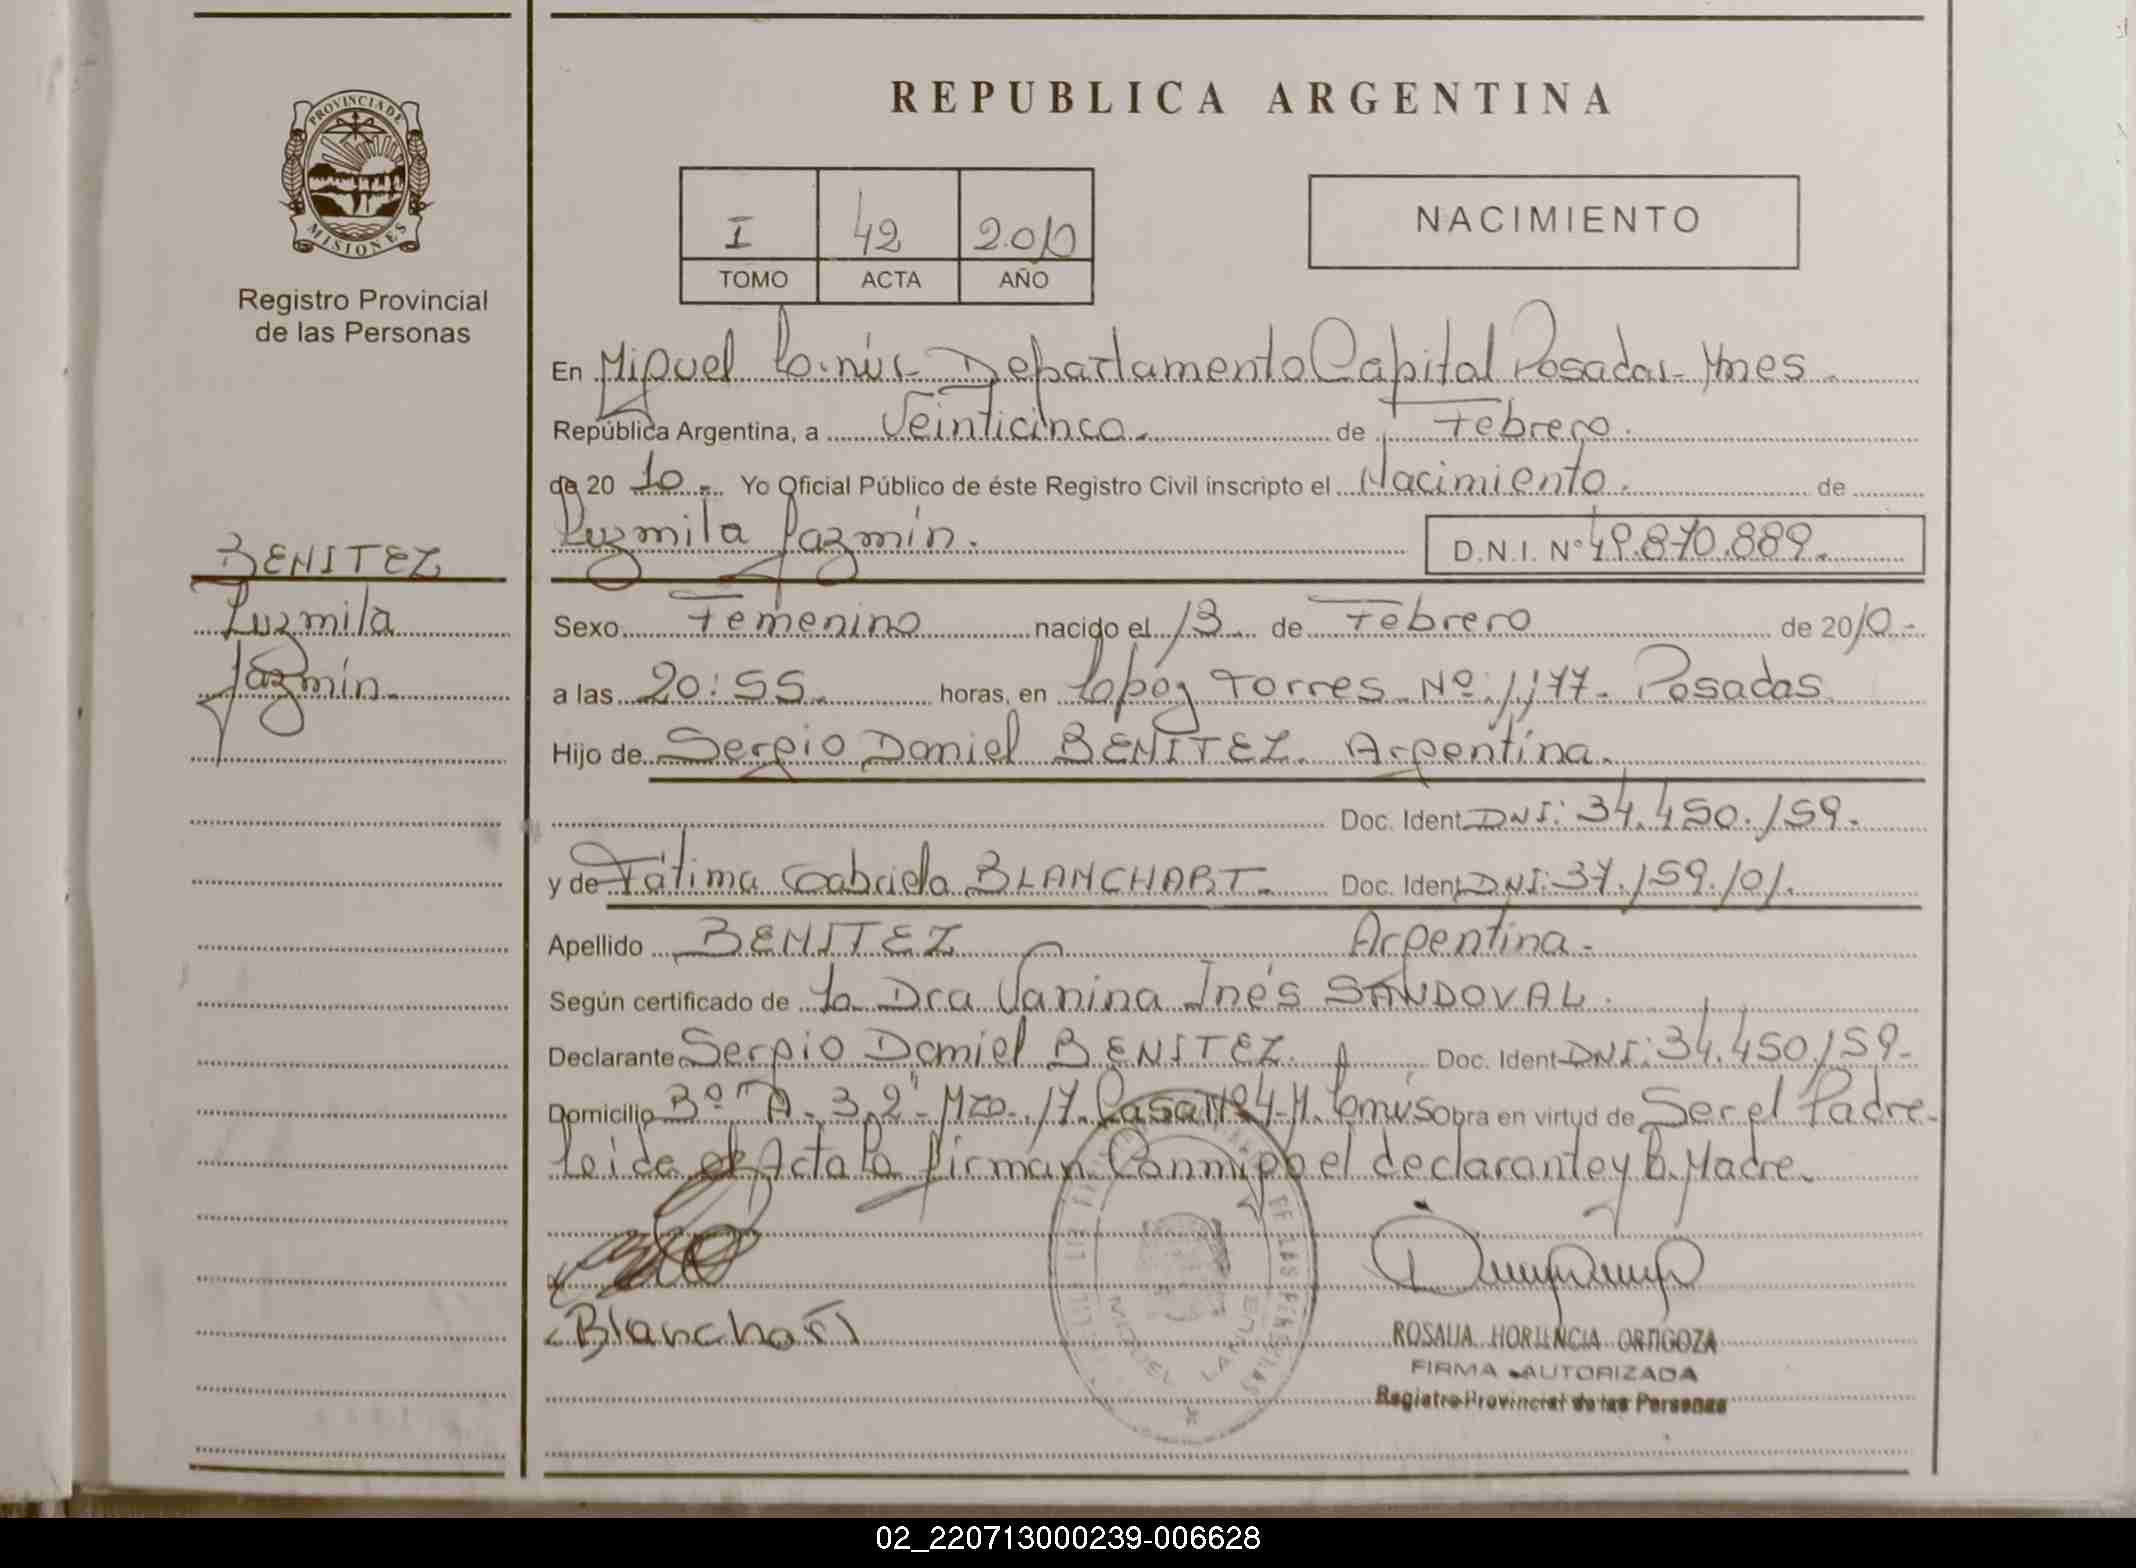 REPUBLICA ARGENTINA
PROVINCIA DE
MISIONES
Registro Provincial
de las Personas
I 42 2010
TOMO ACTA AÑO
NACIMIENTO
En Miguel Lanús - Departamento Capital Posadas - Mnes.
República Argentina, a Veinticinco. de Febrero.
de 20 10.- Yo Oficial Público de éste Registro Civil inscripto el Nacimiento. de
Luzmila Jazmín. D.N.I. Nº 49.870.889.
BENITEZ
Luzmila
Jazmín.
Sexo Femenino nacido el 13 de Febrero de 2010.-
a las 20:55. horas, en López Torres Nº 1177. Posadas.
Hijo de Sergio Daniel BENITEZ. Argentina.
Doc. Ident DNI: 34.450.159.
y de Fátima Gabriela BLANCHART. Doc. Ident DNI: 37.159.101.
Apellido BENITEZ Argentina.
Según certificado de la Dra Vanina Inés SANDOVAL.
Declarante Sergio Daniel BENITEZ. Doc. Ident DNI: 34.450.159.-
Domicilio Bº "A-3,2" Mza. 17. Casa Nº 4-M. Lanús Obra en virtud de Ser el Padre-
Leida el Acta la firman Conmigo el declarante y la Madre.
Blanchart
MIGUEL LANUS
DE LAS PERSONAS
ROSALIA HORTENCIA ORTIGOZA
FIRMA AUTORIZADA
Registro Provincial de las Personas
02_220713000239-006628